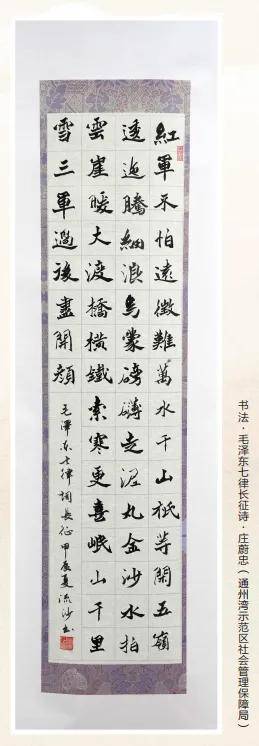 紅軍不怕遠徵難萬水千山祇等閑五嶺
逶迤騰細浪烏蒙磅礴走泥丸金沙水拍
雲崖暖大渡橋橫鐵索寒更喜岷山千里
雪三軍過後盡開顏
毛澤东七律词長征甲辰夏流沙书
书法·毛泽东七律长征诗·庄蔚忠（通州湾示范区社会管理保障局）